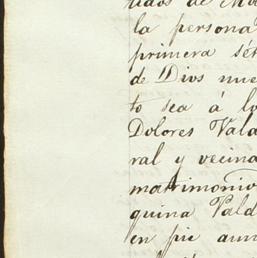 tados de
la persona
primera
de Dios nue
to sea á lo
Dolores Vala
ral y vecina
matrimonio
quina Vald
en pie aun